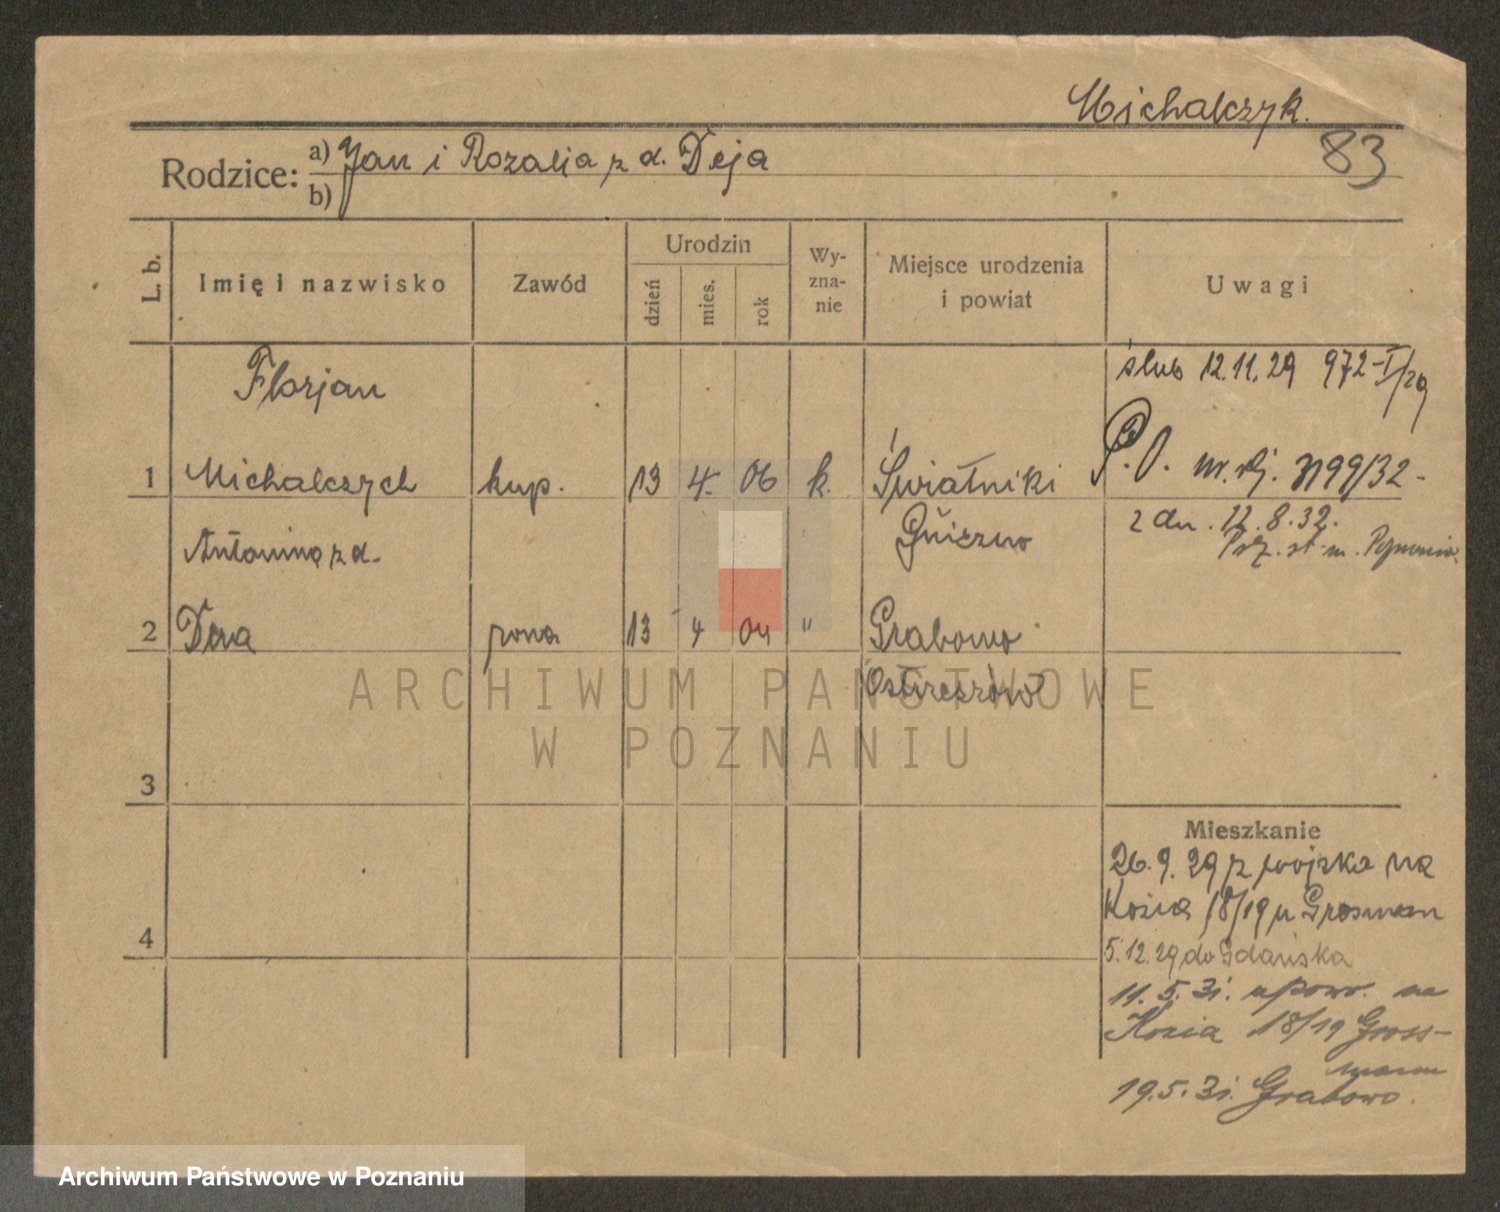 Michalczyk.
83
Rodzice: a) Jan i Rozalia z d. Deja
b)
L. b. Imię i nazwisko Zawód Urodzin dzień mies. rok Wy-zna-nie Miejsce urodzenia i powiat Uwagi
Florjan
ślub 12.11.29 972-I/29
1 Michalczyk kup. 13 4. 06 k. Świątniki
P.O. nr. rej. 3199/32-
Gniezno
z dn. 12.8.32.
Antonina z d.
st. m. Poznania
2 żona 13 4 04 " Grabowo
Ostrzeszów
3
Mieszkanie
26.9.29 z wojska na
Kozia 18/19 u Grosman
4
5.12.29 do Gdańska
11.5.31. na
Kozia 18/19 Gross-
mann
19.5.31. Grabowo.
ARCHIWUM PAŃSTWOWE
W POZNANIU
Archiwum Państwowe w Poznaniu